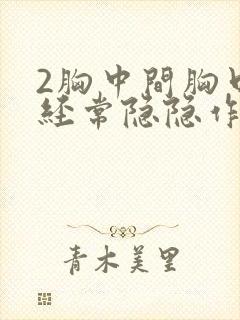 2胸中間胸口
经常隐隐作
青木美里